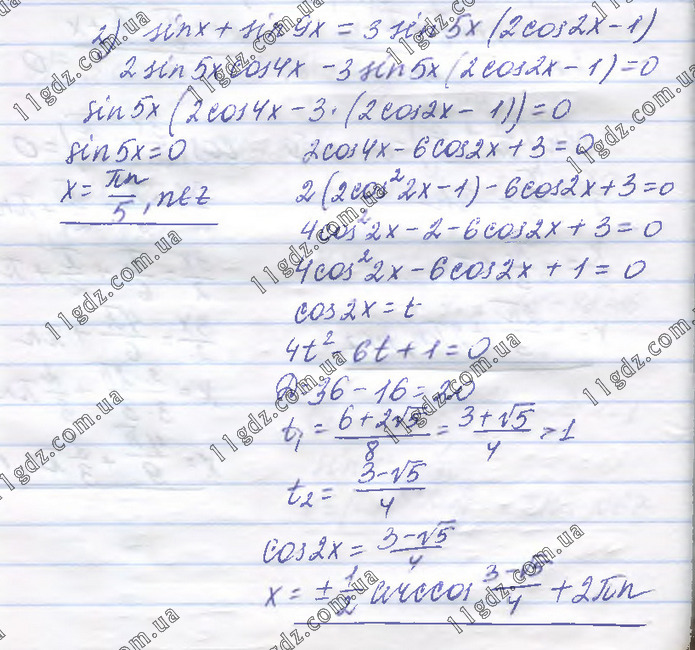 2) sinx + sin9x = 3sin5x(2cos2x-1)
2sin5xcos4x - 3sin5x(2cos2x-1)=0
sin5x(2cos4x-3·(2cos2x-1))=0
sin5x=0 2cos4x-6cos2x+3=0
x= πn/5, n∈z 2(2cos²2x-1)-6cos2x+3=0
4cos²2x-2-6cos2x+3=0
4cos²2x-6cos2x+1=0
cos2x=t
4t²-6t+1=0
D=36-16=20
t₁ = (6+2√5)/8 = (3+√5)/4 >1
t₂ = (3-√5)/4
cos2x = (3-√5)/4
x = ± 1/2 arccos (3-√5)/4 + 2πn
11gdz.com.ua
11gdz.com.ua
11gdz.com.ua
11gdz.com.ua
11gdz.com.ua
11gdz.com.ua
11gdz.com.ua
11gdz.com.ua
11gdz.com.ua
11gdz.com.ua
11gdz.com.ua
11gdz.com.ua